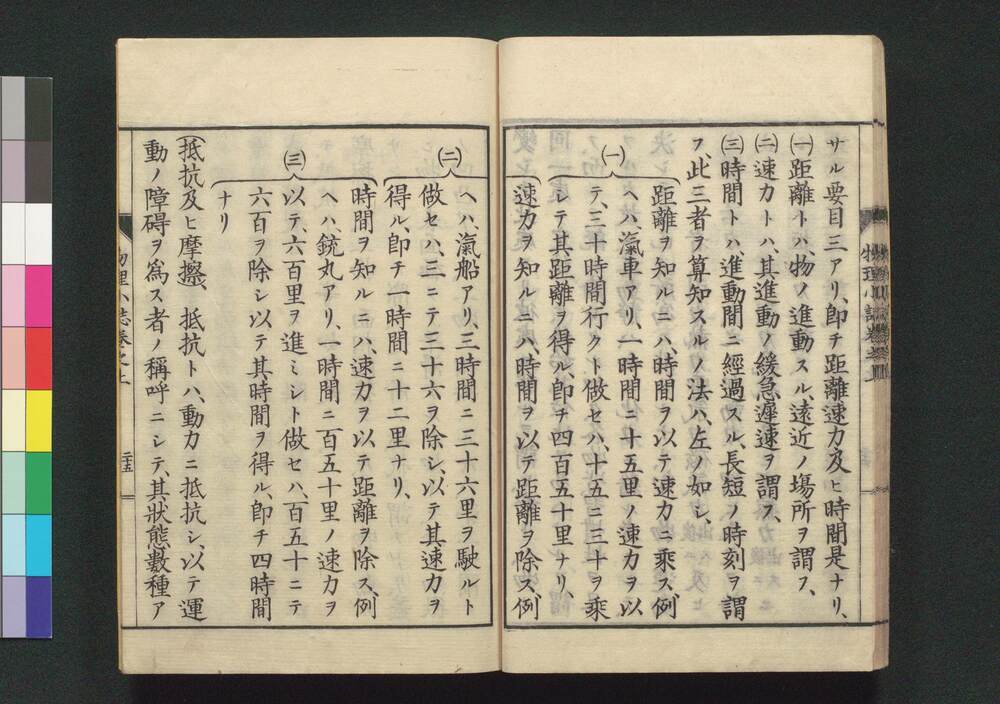 サル要目三アリ、即チ距離速力及ヒ時間是ナリ、
㈠距離トハ、物ノ進動スル、遠近ノ塲所ヲ謂フ、
㈡速力トハ、其進動ノ緩急遲速ヲ謂フ、
㈢時間トハ、進動間ニ經過スル、長短ノ時刻ヲ謂
フ、此三者ヲ算知スルノ法ハ、左ノ如シ、
距離ヲ知ルニハ、時間ヲ以テ速力ニ乘ス、例
(一)
ヘハ、滊車アリ、一時間ニ十五里ノ速力ヲ以
テ、三十時間行クト做セハ、十五ニ三十ヲ乘
シテ其距離ヲ得ル、即チ四百五十里ナリ、
速力ヲ知ルニハ、時間ヲ以テ距離ヲ除ス、例
(二)
ヘハ、滊船アリ、三時間ニ三十六里ヲ駛ルト
做セハ、三ニテ三十六ヲ除シ、以テ其速力ヲ
得ル、即チ一時間ニ十二里ナリ、
時間ヲ知ルニハ、速力ヲ以テ距離ヲ除ス、例
ヘハ、銃丸アリ、一時間ニ百五十里ノ速力ヲ
(三)
以テ、六百里ヲ進ミシト做セハ、百五十ニテ
六百ヲ除シ以テ其時間ヲ得ル、即チ四時間
ナリ
(抵抗及ヒ摩擦)、抵抗トハ、動力ニ抵抗シ、以テ運
動ノ障碍ヲ爲ス者ノ稱呼ニシテ、其狀態數種ア
物理小誌卷之上
二十五